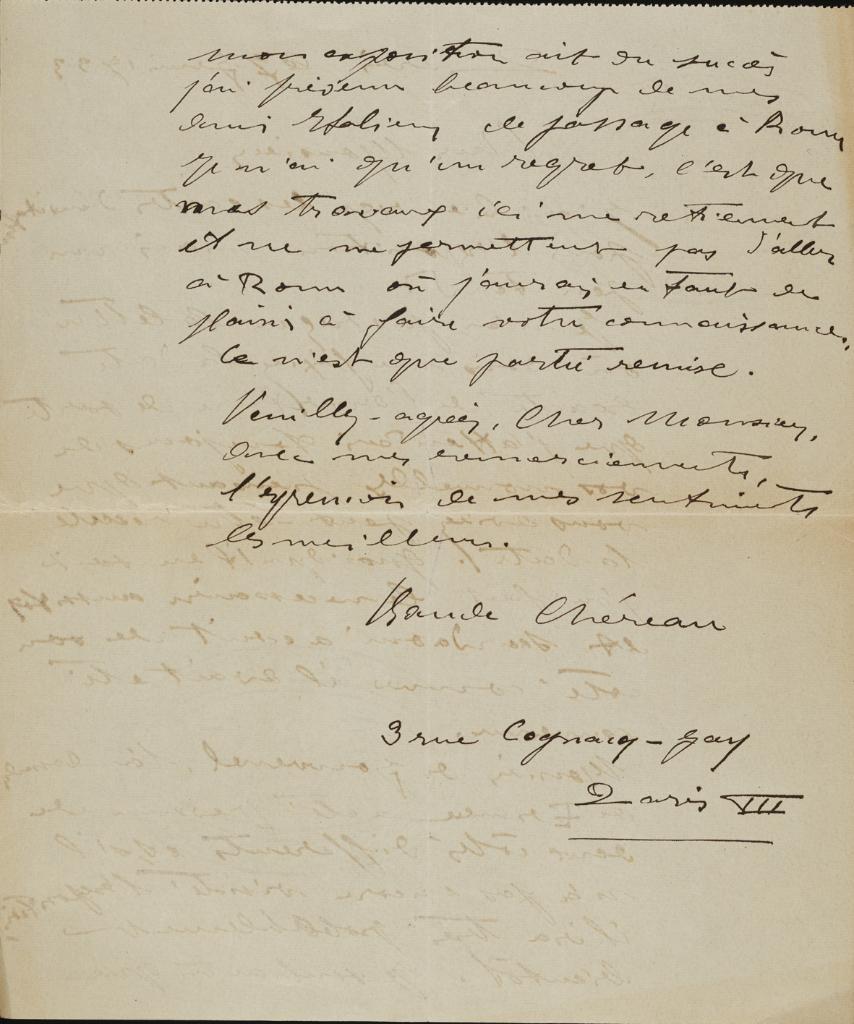 mon exposition ait du succès
j'ai prévenu beaucoup de mes
amis Italiens de passage à Rome
Je n'ai qu'un regret, c'est que
mes travaux ici me retiennent
et ne me permettent pas d'aller
à Rome où j'aurais eu tant de
plaisir à faire votre connaissance.
Ce n'est que partie remise.
Veuillez-agréer, Cher Monsieur,
avec mes remerciements,
l'expression de mes sentiments
les meilleurs.
Chéreau
3 rue Cognacq-Jay
Paris VII